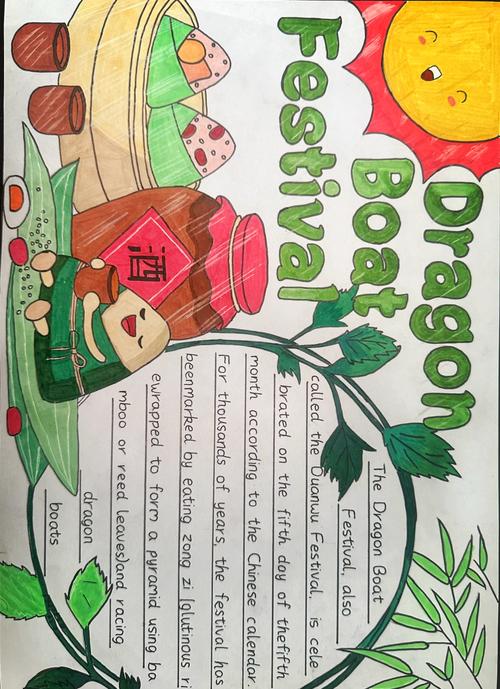 Dragon
Boat
Festival
酒
The Dragon Boat
Festival, also
called the Duanwu Festival, is cele
brated on the fifth day of thefifth
month according to the Chinese calendar.
For thousands of years, the festival has
beenmarked by eating zong zi (glutinous ri
ewrapped to form a pyramid using ba
mboo or reed leaves)and racing
dragon
boats